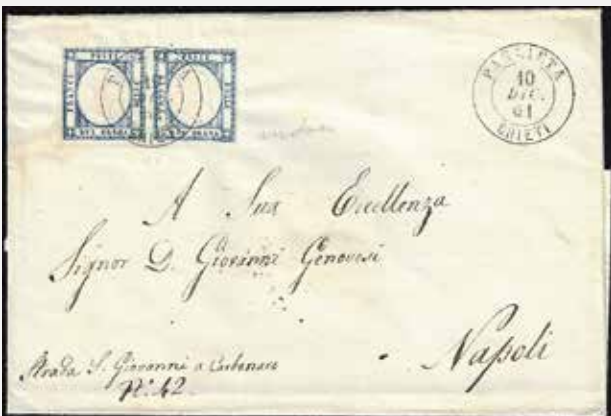 FRANCO POSTE BOLLO
DUE GRANA
10
DIC.
61
CHIETI
A Sua Eccellenza
Signor D. Giovanni Genovesi
Napoli
Strada S. Giovanni a Carbonara
N.° 42